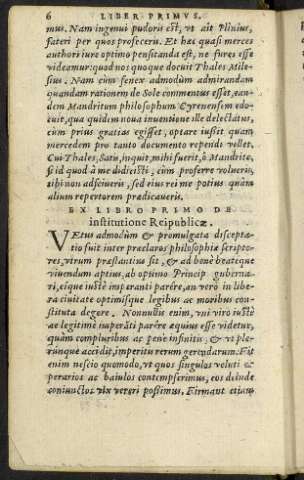 6 LIBER PRIMVS.
mus. Nam ingenui pudoris est, vt ait Plinius,
fateri per quos profeceris. Et hæc quasi merces
authori iure optimo pensitanda est, ne fures esse
videamur: quod nos quoque docuit Thales Mile-
sius. Nam cùm senex admodùm admirandam
quandam rationem de Sole commentus esset, ean-
dem Mandritum philosophum Cyrenensem edo-
cuit, qua quidem noua inuentione ille delectatus,
cùm prius gratias egisset, optare iußit quam
mercedem pro tanto documento rependi vellet.
Cui Thales, Satis, inquit, mihi fuerit, ô Mandrite,
si id quod à me didicisti, cùm proferre volueris,
tibi non adsciueris, sed eius rei me potius quàm
alium repertorem prædicaueris.
EX LIBRO PRIMO DE
institutione Reipublicæ.
VEtus admodùm & promulgata discepta-
tio fuit inter præclaros philosophiæ scripto-
res, vtrum præstantius sit, & ad benè beateque
viuendum aptius, ab optimo Princip guberna-
ri, eique iustè imperanti parére, an verò in libe-
ra ciuitate optimisque legibus ac moribus con-
stituta degere. Nonnullis enim, vni viro iustè
ac legitimè imperāti parére æquius esse videtur,
quàm compluribus ac penè infinitis; & vt ple-
runque accidit, imperitis rerum gerendarum. Fit
enim nescio quomodo, vt quos singulos veluti
perarios ac baiulos contempserimus, eos deinde
coniunctos vix vereri poßimus. Firmant etiam